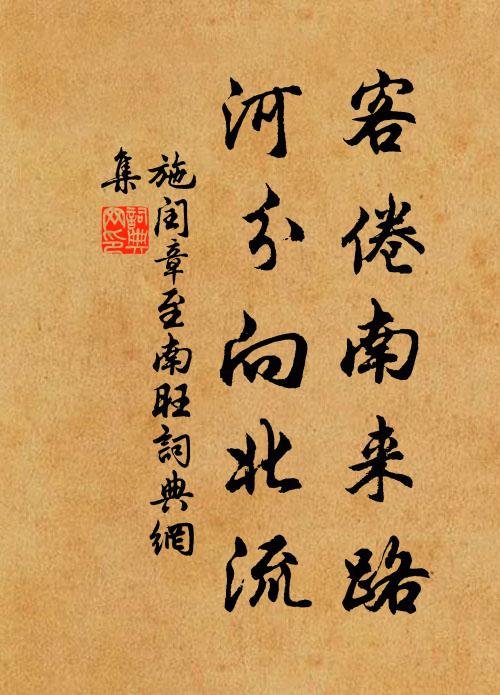 客倦南来路
河分向北流
施闰章至南旺詞典網
集
詞典
网印